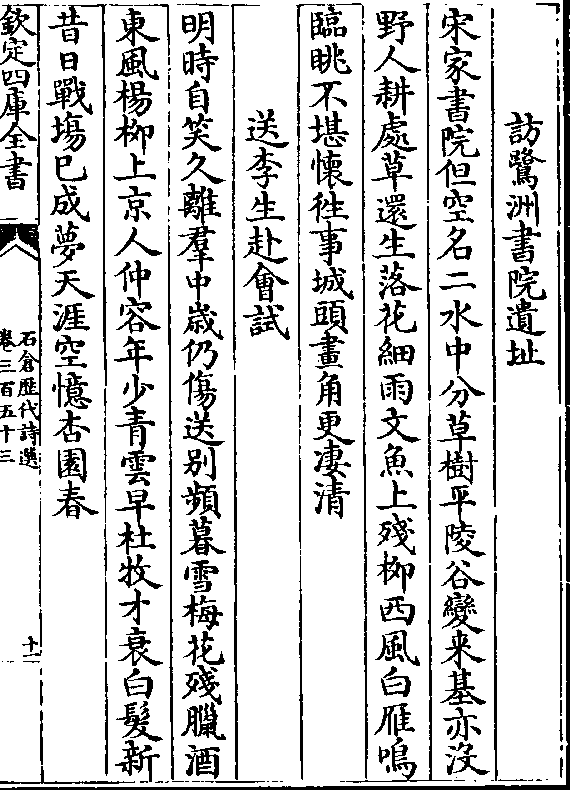 訪鷺洲書院遺址
宋家書院但空名二水中分草樹平陵谷變来基亦沒
野人耕處草還生落花細雨文魚上殘柳西風白雁鳴
臨眺不堪懷徃事城頭畫角更凄清
送李生赴會試
明時自笑久離羣中歳仍傷送别頻暮雪梅花殘臘酒
東風楊柳上京人仲容年少青雲早杜牧才衰白髮新
昔日戰塲已成夢天涯空憶杏園春
欽定四庫全書
石倉歴代詩選
卷三百五十三
十一